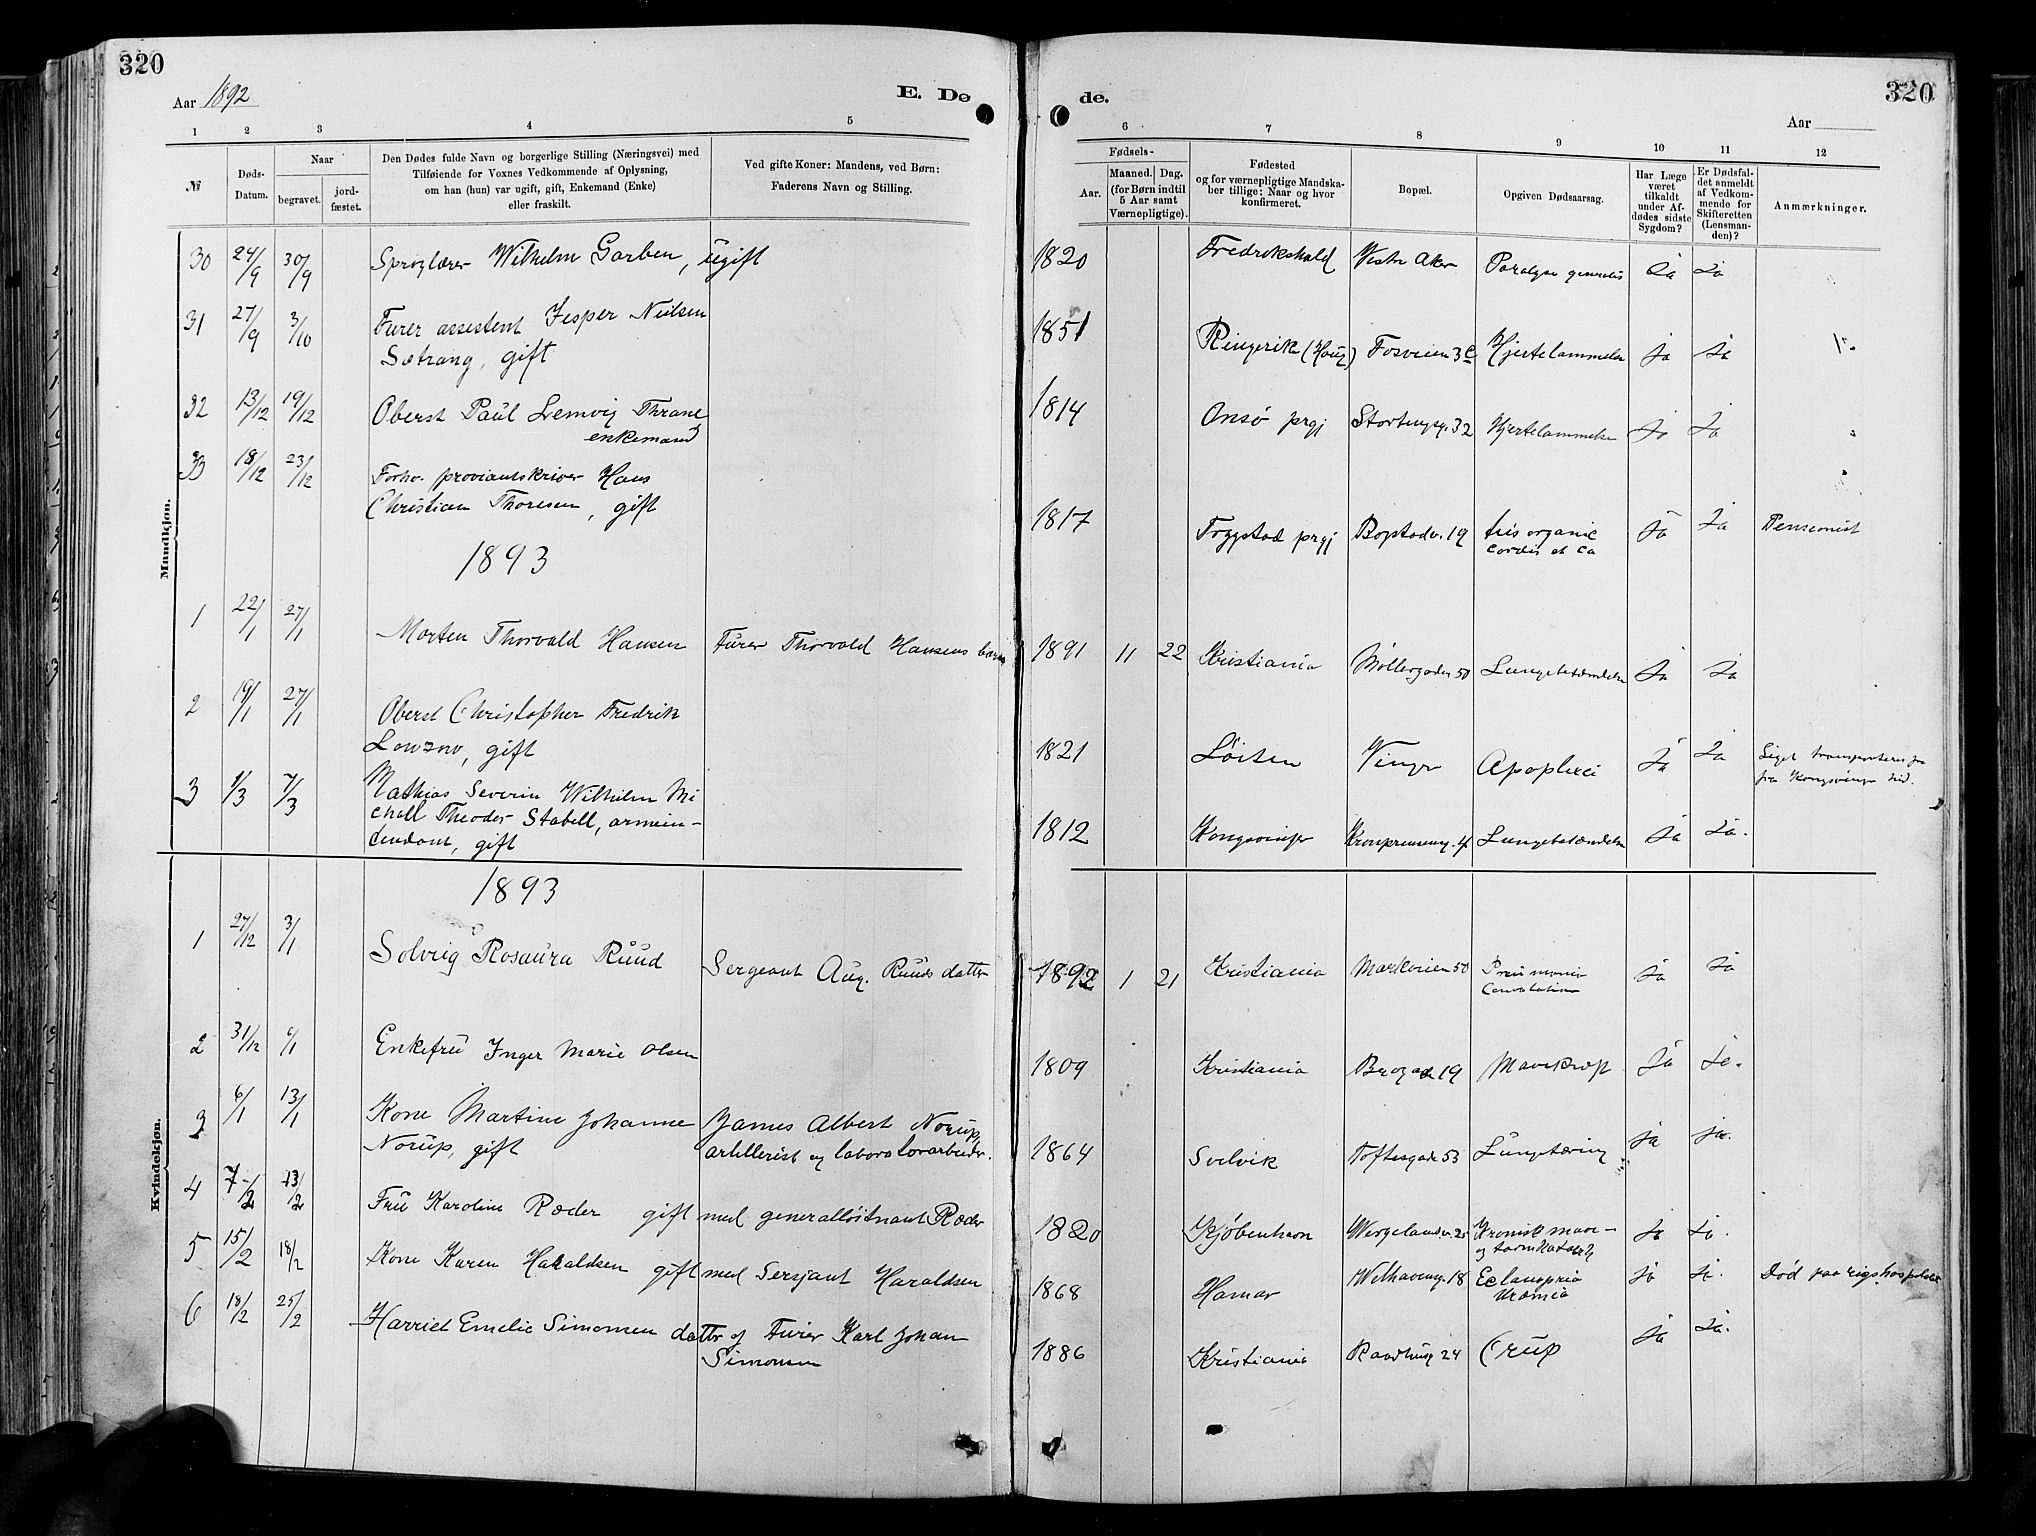 320
Aar 1892
E. Dø
1 2 3 4 5
№
Døds-Datum.
Naar
begravet.
jordfæstet.
Den Dødes fulde Navn og borgerlige Stilling (Næringsvei) med
Tilføiende for Voxnes Vedkommende af Oplysning,
om han (hun) var ugift, gift, Enkemand (Enke)
eller fraskilt.
Ved gifte Koner: Mandens, ved Børn:
Faderens Navn og Stilling.
Mundkjøn.
30 24/9 30/9 Sproglærer Wilhelm Garben, ugift
31 27/9 3/10 Furer assistent Jesper Nielsen
Sætrang, gift
32 13/12 19/12 Oberst Paul Lemvig Thrane
enkemand
33 18/12 23/12 Forhv. proviantskriver Hans
Christian Thoresen, gift
1893
1 22/1 27/1 Morten Thorvald Hansen Furer Thorvald Hansens barn
2 19/1 27/1 Oberst Christopher Fredrik
Lowzow, gift
3 1/3 7/3 Mathias Severin Wilhelm Mi
chall Theodor Stabell, armein-
tendant, gift
1893
Kvindekjøn.
1 27/12 3/1 Solveig Rosaura Ruud Sergeant Aug. Ruuds datter
2 31/12 6/1 Enkefru Inger Marie Olsen
3 6/1 13/1 Kone Martine Johanne James Albert Norup,
Norup, gift artillerist og laboratorarbeider.
4 7/2 13/2 Fru Karoline Ræder gift med generalløitnant Ræder
5 15/2 18/2 Kone Karen Haraldsen gift med Sersjant Haraldsen
6 18/2 25/2 Harriet Emelie Simonsen datter af Furer Karl Johan
Simonsen
de.
320
Aar
6 7 8 9 10 11 12
Fødsels-
Aar.
Maaned. Dag.
(for Børn indtil
5 Aar samt
Værnepligtige).
Fødested
og for værnepligtige Mandska-
ber tillige: Naar og hvor
konfirmeret.
Bopæl.
Opgiven Dødsaarsag.
Har Læge
været
tilkaldt
under Af-
dødes sidste
Sygdom?
Er Dødsfal-
det anmeldt
af Vedkom-
mende for
Skifteretten
(Lensman-
den)?
Anmærkninger.
1820 Fredrikshald Vestre Aker Paralyse generalis Ja Ja
1851 Ringerik (Houg) Fosveien 3 c Hjertelammelse Ja Ja
1814 Onsø prgj Stortingsg. 32 Hjertelammelse Ja Ja
1817 Trygstad prgj Bogstadv. 19 organic Ja Ja Pensionist
cordis et ca
1891 11 22 Kristiania Møllergaden 50 Lungebetændelse Ja Ja
1821 Løiten Vinger Apoplexi Ja Ja Liget transporteres
fra Kongsvinger hid.
1812 Kongsvinger Kronprinsensg. 4 Lungebetændelse Ja Ja.
1892 1 21 Kristiania Markveien 50 Ja Ja
1809 Kristiania Brogaden 19 Mavekræft Ja Ja.
1864 Svelvik Toftesgade 53 Lungetæring ja ja.
1820 Kjøbenhavn Wergelandsv. 25 Kronisk mave- Ja Ja.
og tarmkatarrh
1868 Hamar Welhavensg. 18 Eclampsia Ja Ja. Død paa rigshospitalet
Uræmia
1886 Kristiania Raadhusg 24 Crup Ja Ja.